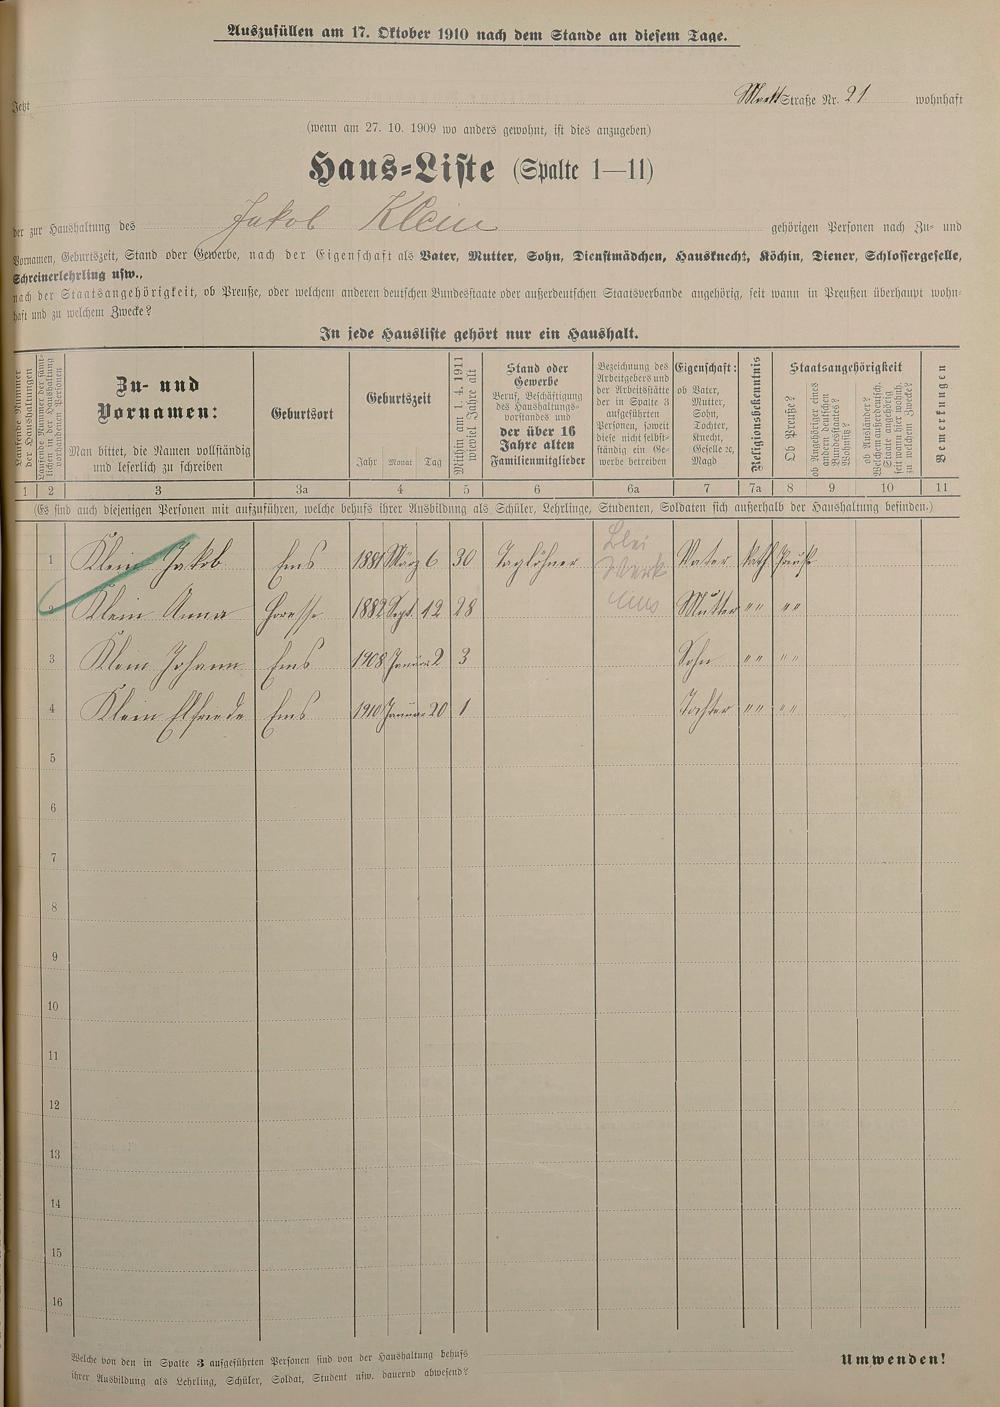 Auszufüllen am 17. Oktober 1910 nach dem Stande an diesem Tage.
Jetzt Straße Nr. 21 wohnhaft
(wenn am 27. 10. 1909 wo anders gewohnt, ist dies anzugeben)
Haus-Liste (Spalte 1—11)
der zur Haushaltung des Jakob Klein gehörigen Personen nach Zu- und
Vornamen, Geburtszeit, Stand oder Gewerbe, nach der Eigenschaft als Vater, Mutter, Sohn, Dienstmädchen, Hausknecht, Köchin, Diener, Schlossergeselle,
Schreinerlehrling usw.,
nach der Staatsangehörigkeit, ob Preuße, oder welchem anderen deutschen Bundesstaate oder außerdeutschen Staatsverbande angehörig, seit wann in Preußen überhaupt wohn-
haft und zu welchem Zwecke?
In jede Hausliste gehört nur ein Haushalt.
Laufende Nummer
der Haushaltungen
Laufende Nummer der sämt-
lichen in der Haushaltung
vorhandenen Personen
Zu- und
Vornamen:
Man bittet, die Namen vollständig
und leserlich zu schreiben
Geburtsort
Geburtszeit
Jahr Monat Tag
Mithin am 1. 4. 1911
wieviel Jahre alt
Stand oder
Gewerbe
Beruf, Beschäftigung
des Haushaltungs-
vorstandes und
der über 16
Jahre alten
Familienmitglieder
Bezeichnung des
Arbeitgebers und
der Arbeitsstätte
der in Spalte 3
aufgeführten
Personen, soweit
diese nicht selbst-
ständig ein Ge-
werbe betreiben
Eigenschaft:
ob Vater,
Mutter,
Sohn,
Tochter,
Knecht,
Geselle ec,
Magd
Religionsbekenntnis
Staatsangehörigkeit
Ob Preuße?
ob Angehöriger eines
andern deutschen
Bundesstaates?
Wohnsitz?
ob Ausländer?
Welchem außerdeutsch.
Staate angehörig
seit wann hier wohnh.
zu welchem Zwecke?
Bemerkungen
1 2 3 3a 4 5 6 6a 7 7a 8 9 10 11
(Es sind auch diejenigen Personen mit aufzuführen, welche behufs ihrer Ausbildung als Schüler, Lehrlinge, Studenten, Soldaten sich außerhalb der Haushaltung befinden.)
1 Klein Jakob Ems 1881 März 6 30 Taglöhner Blei Werk Ems Vater kath. Preuße
2 Klein Anna 1882 Sept. 12 28 Mutter " " " "
3 Klein Johann Ems 1908 Januar 2 3 Sohn " " " "
4 Klein Elfriede Ems 1910 Januar 20 1 Tochter " " " "
5
6
7
8
9
10
11
12
13
14
15
16
Welche von den in Spalte 3 aufgeführten Personen sind von der Haushaltung behufs
ihrer Ausbildung als Lehrling, Schüler, Soldat, Student usw. dauernd abwesend?
Umwenden!